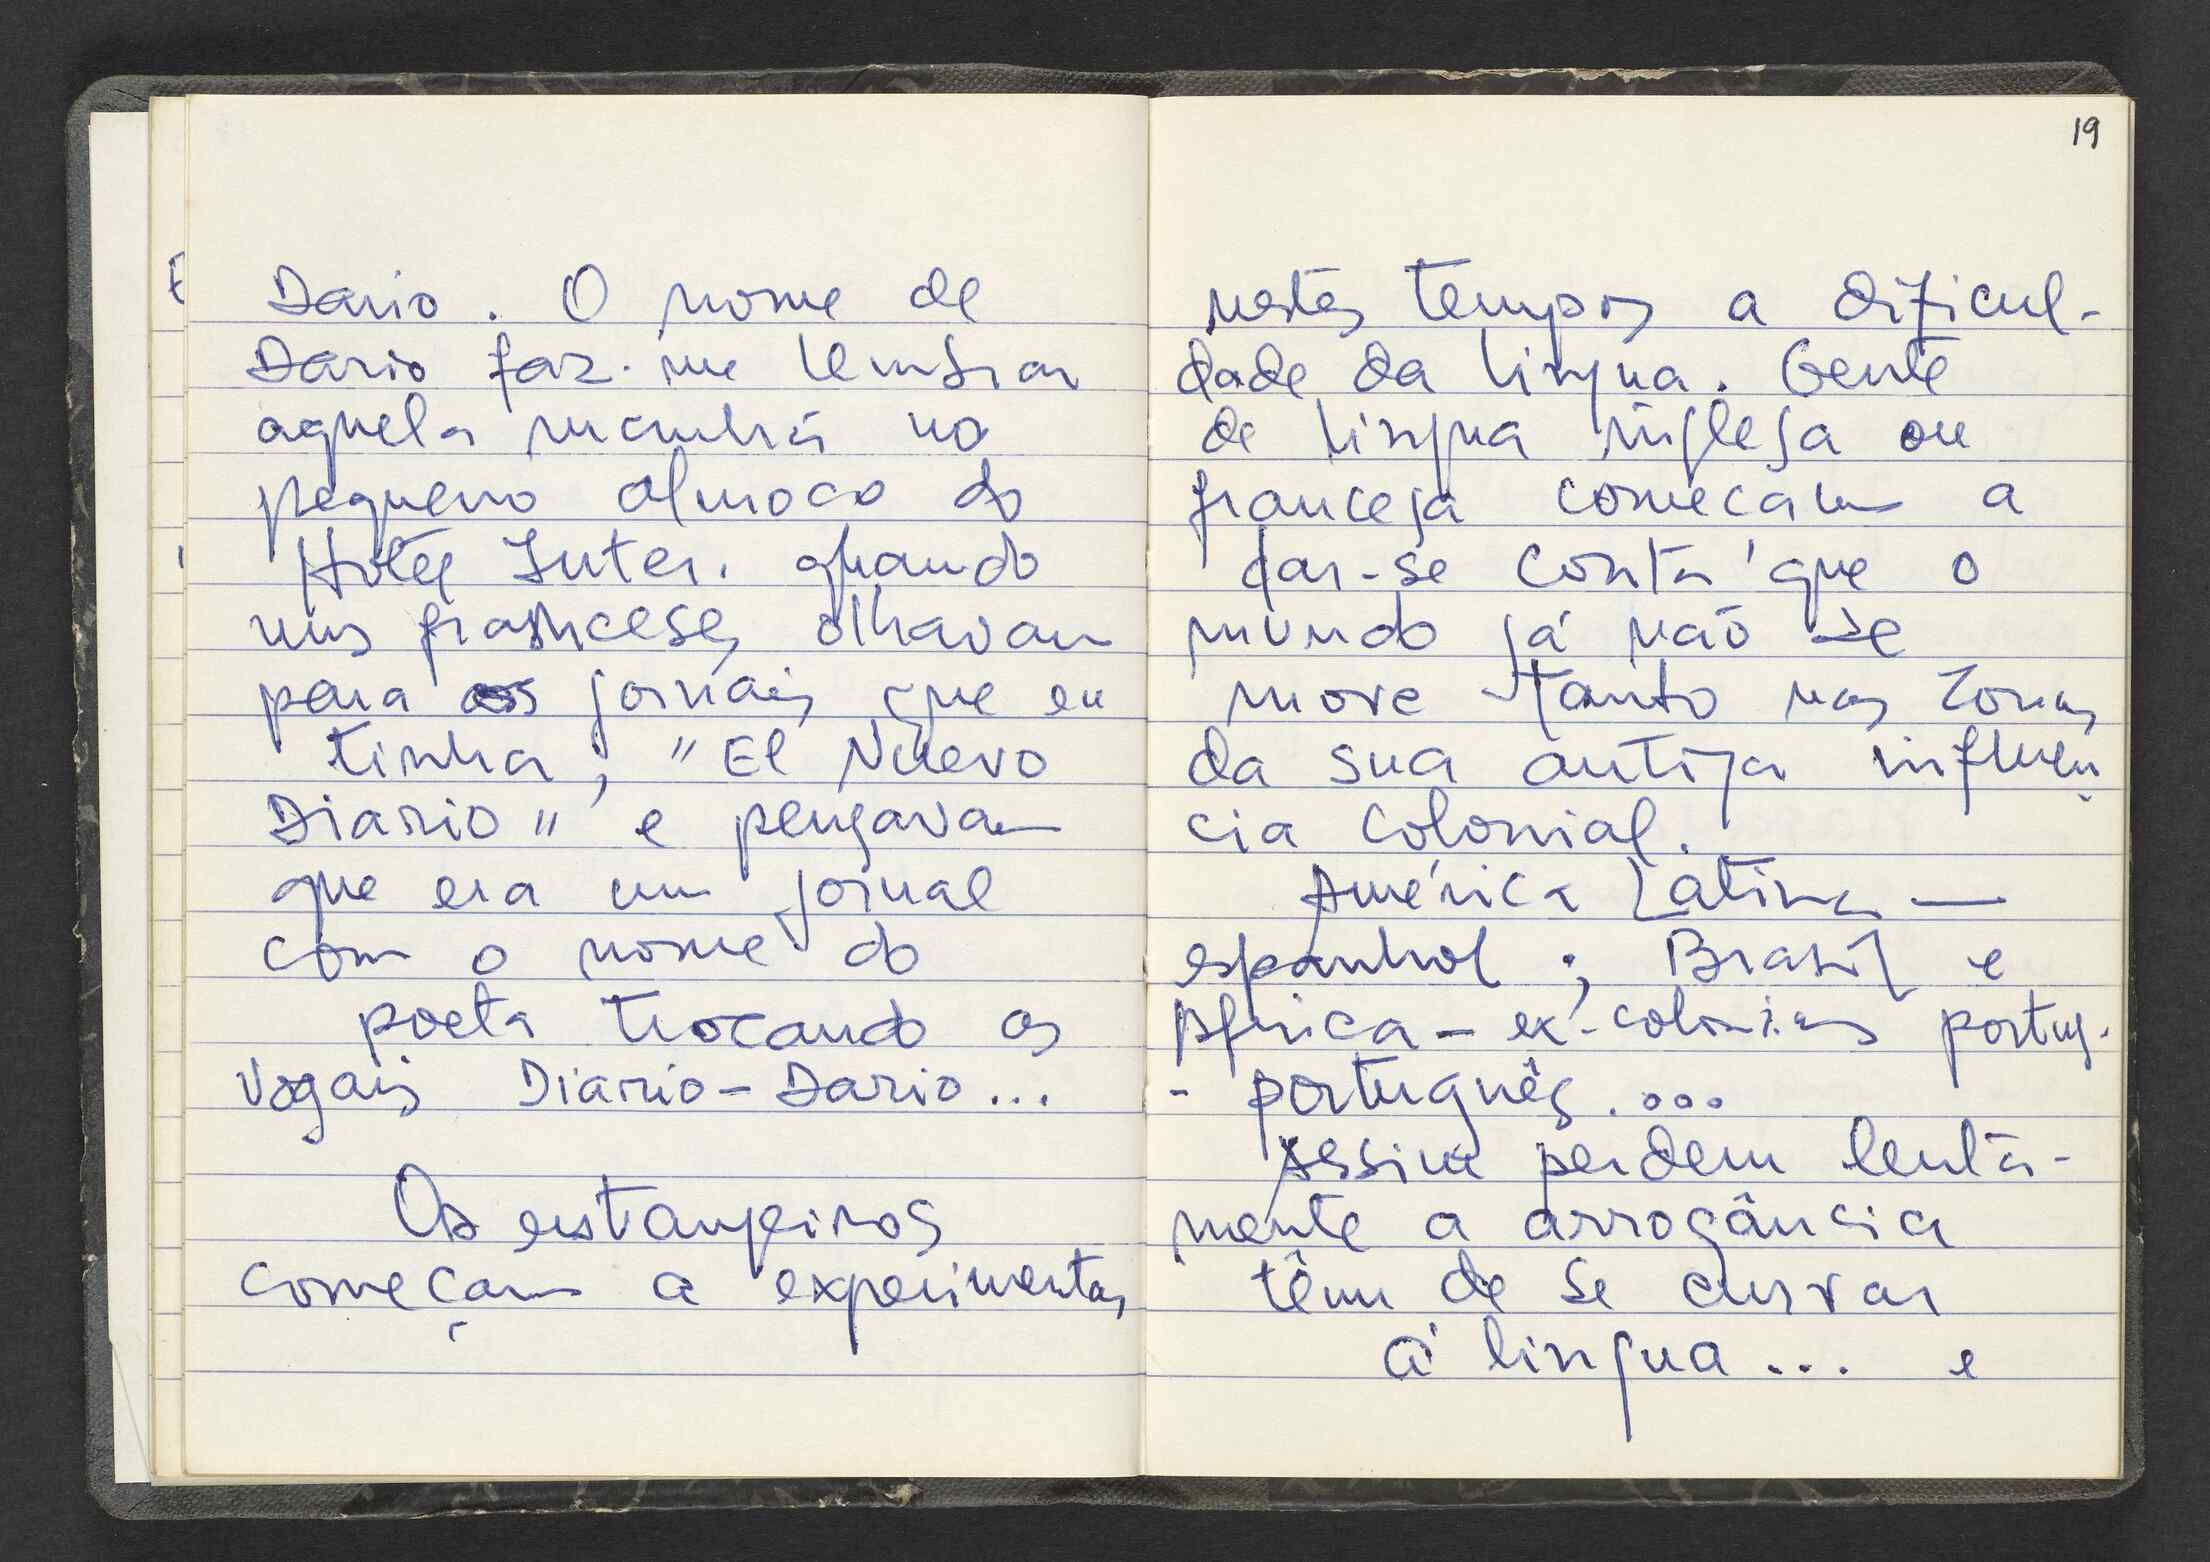 Dario. O nome de
Dario faz-me lembrar
aquela manhã no
pequeno almoco do
Hotel Inter. quando
uns franceses olhavam
para os jornais que eu
tinha, "El Nuevo
Diario" e pensavam
que era um jornal
com o nome do
poeta trocando as
vogais Diario-Dario...
Os estangeiros
começam a experimentar
19
nestes tempos a dificul-
dade da lingua. Gente
de lingua inglesa ou
francesa comecam a
dar-se conta que o
mundo já não se
move tanto nas zonas
da sua antiga influen
cia colonial.
América Latina —
espanhol; Brasil e
Africa - ex-colonias portug.
- português....
Assim perdem lenta-
mente a arrogância
têm de se curvar
á lingua... e